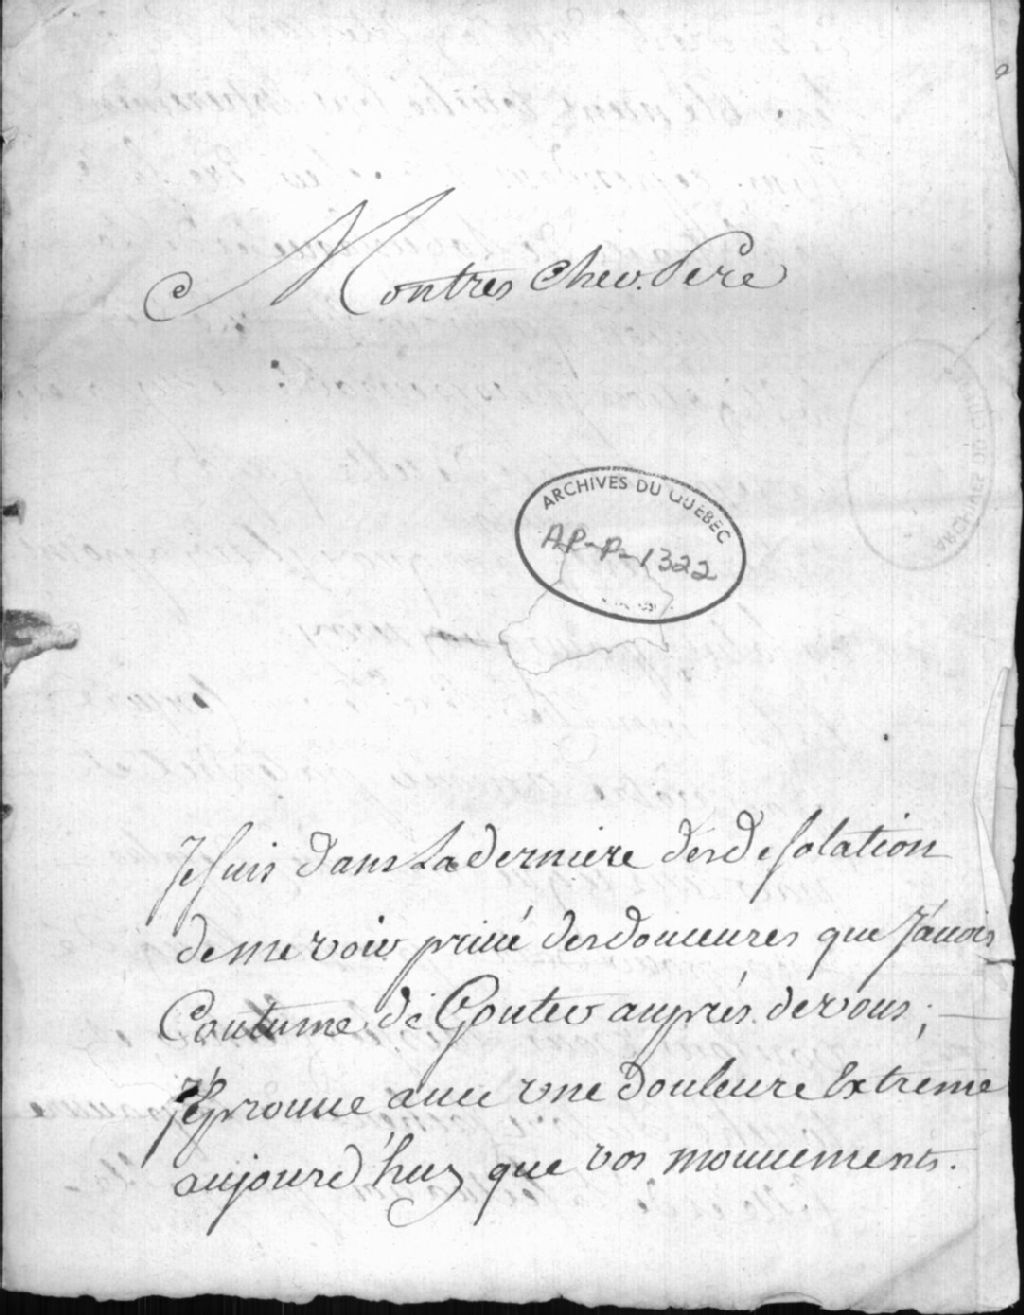 Montres Cher Pere
ARCHIVES DU QUÉBEC
AP-P-1322
Je suis dans La derniere des desolation
de me voir privé des douceures que J'avois
Coutume de Gouter auprés de vous;
J'éprouve avec une douleure Extreme
aujourd'huy que vos mouvements.